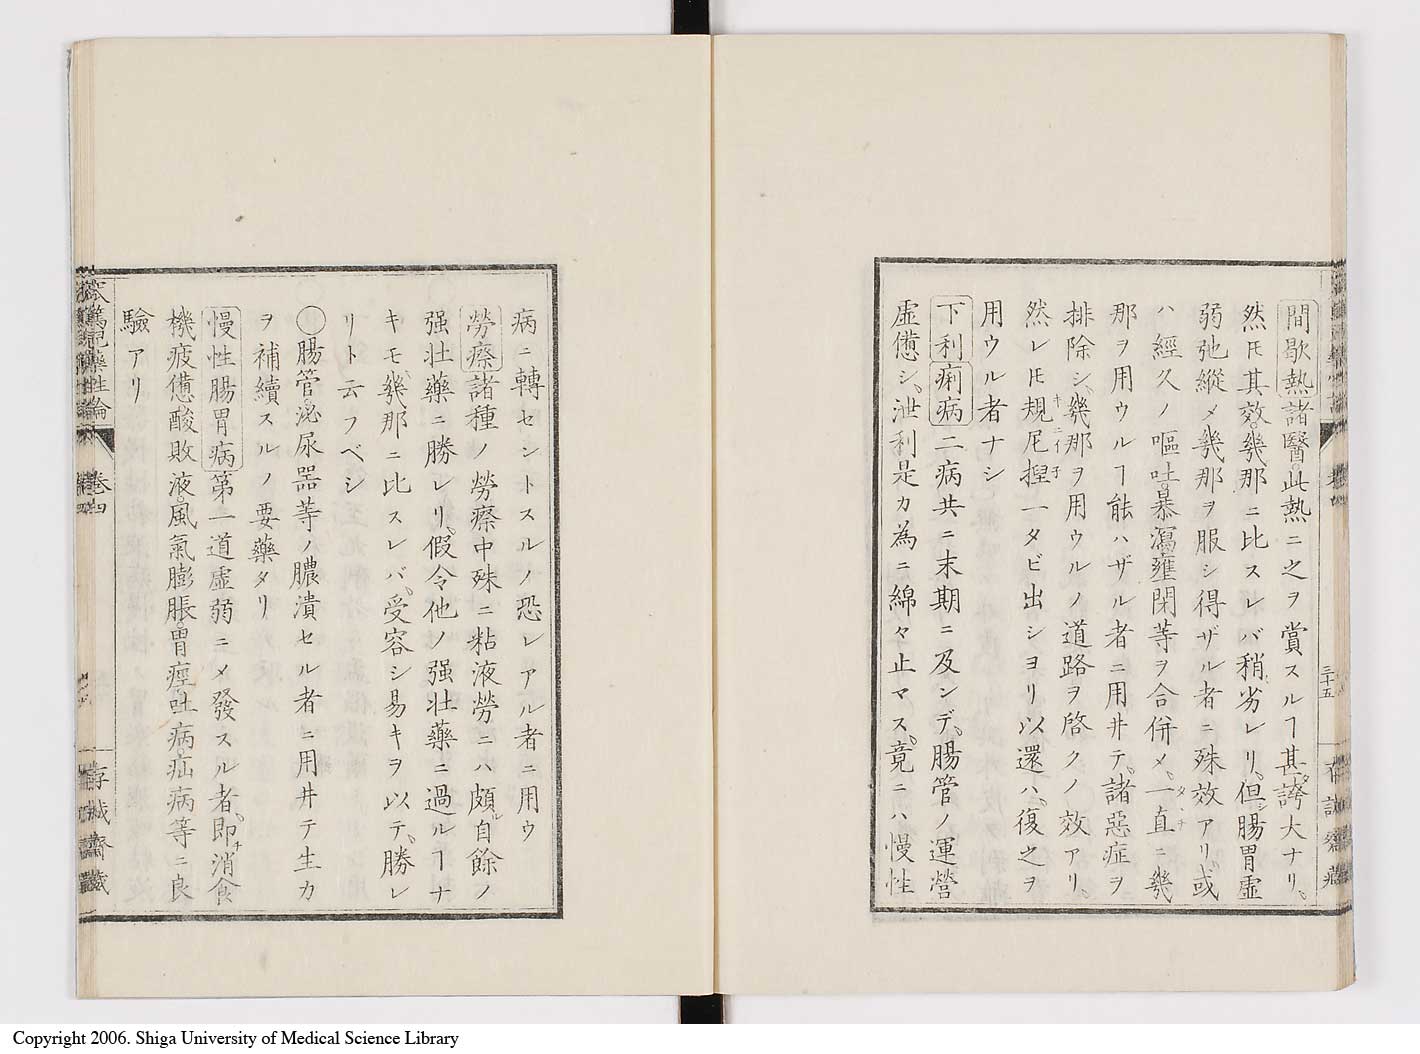 間歇熱諸醫此熱ニ之ヲ賞スルヿ甚誇大ナリ、
然𪜈其效幾那ニ比スレバ稍劣レリ、但シ腸胃虛
弱弛縱メ幾那ヲ服シ得ザル者ニ殊效アリ、或
ハ經久ノ嘔吐暴瀉壅閉等ヲ合併メ、一直ニ幾
那ヲ用ウルヿ能ハザル者ニ用井テ、諸惡症ヲ
排除シ、幾那ヲ用ウルノ道路ヲ啓クノ效アリ、
然レ𪜈規尼捏一タビ出シヨリ以還ハ、復之ヲ
用ウル者ナシ
下利痢病二病共ニ末期ニ及ンデ、腸管ノ運營
虛憊シ、泄利是カ為ニ綿々止マス、竟ニハ慢性
三十五
病ニ轉セントスルノ恐レアル者ニ用ウ
勞瘵諸種ノ勞瘵中殊ニ粘液勞ニハ頗ル自餘ノ
强壯藥ニ勝レリ、假令他ノ强壯藥ニ過ルヿナ
キモ、幾那ニ比スレバ、受容シ易キヲ以テ、勝レ
リト云フベシ
○腸管泌尿器等ノ膿潰セル者ニ用井テ生力
ヲ補續スルノ要藥タリ
慢性腸胃病第一道虛弱ニメ發スル者、即チ消食
機疲憊酸敗液風氣膨脹胃痙吐病疝病等ニ良
驗アリ
窊篤兒藥性論
卷四
存誠齋藏
Copyright 2006. Shiga University of Medical Science Library